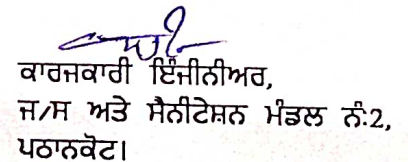 ਕਾਰਜਕਾਰੀ ਇੰਜੀਨੀਅਰ,
ਜ/ਸ ਅਤੇ ਸੈਨੀਟੇਸ਼ਨ ਮੰਡਲ ਨੰ:2,
ਪਠਾਨਕੋਟ।